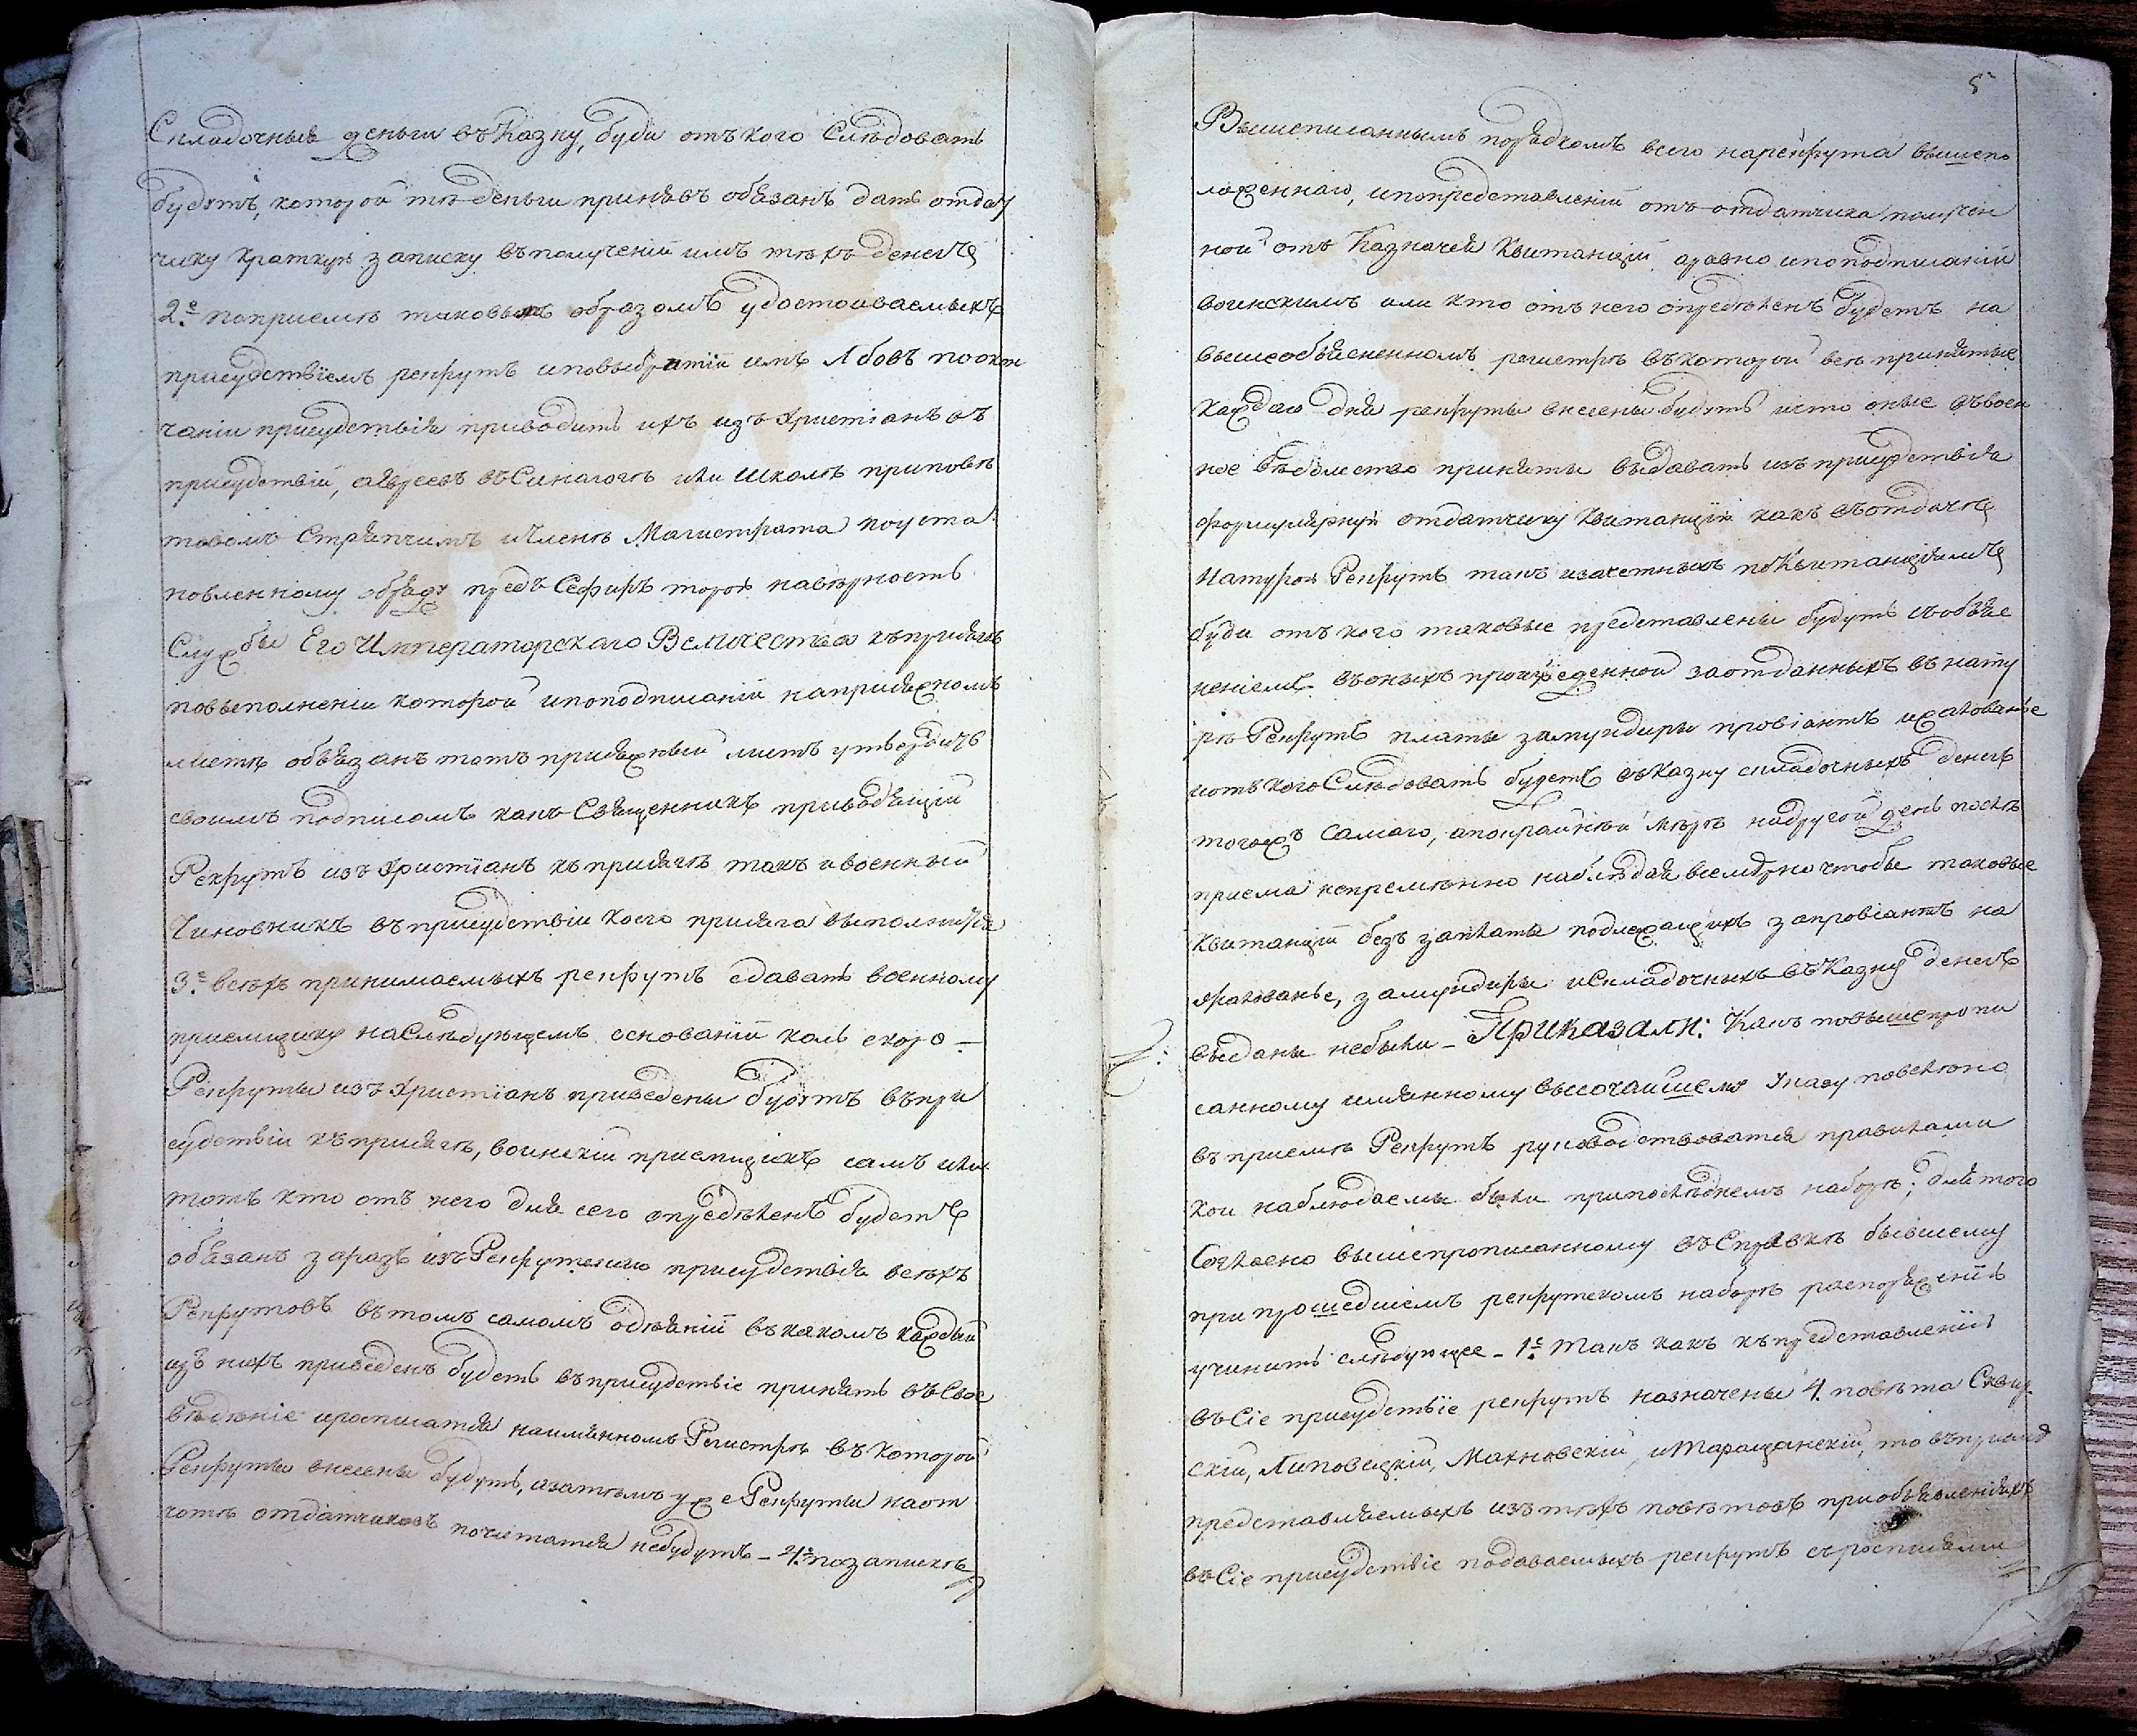 Складочныя деньги въ Казну, буди отъ кого Слѣдовать
будутъ, которой тѣ деньги принявъ обязанъ дать отдат
чику краткую записку въ полученіи имъ тѣхъ денегъ
2е. по приемѣ таковымъ образомъ удостоиваемыхъ
присудствіемъ рекрутъ и по выбритіи имъ лбовъ по окон
чаніи присудствія приводить ихъ изъ христіанъ въ
присудствіи, а Евреевъ въ Синагогѣ или школѣ при повѣ
товомъ Стряпчимъ и Членѣ Магистрата по уста
новленному обряду предъ Сефиръ торою на вѣрность
Службы Его Императорскаго Величества къ присягѣ
по выполненіи которой и по подписаніи на присяжномъ
листѣ обязанъ тотъ присяжный листъ утвердить
своимъ подписомъ какъ Священникъ приводящій
Рекрутъ изъ христіанъ къ присягѣ такъ и военный
Чиновникъ въ присудствіи коего присяга выполнится
3е. всѣхъ принимаемыхъ рекрутъ сдавать военному
приемщику на Слѣдующемъ основаніи коль скоро –
Рекруты изъ христіанъ приведены будутъ въ при
судствіи къ присягѣ, воинскій приемщикъ самъ или
тотъ кто отъ него для сего опредѣленъ будетъ
обязанъ заразъ изъ Рекрутскаго присудствія всѣхъ
Рекрутовъ въ томъ самомъ одѣяніи въ какомъ каждый
изъ нихъ приведенъ будетъ въ присудствіе принять въ Свое
вѣдѣніе и росписатся на имянномъ Регистрѣ въ которой
Рекруты внесены будутъ, а затѣмъ уже Рекруты на от
чотѣ отдатчиковъ почитатся небудутъ – 4е. по запискѣ
5
Вышеписаннымъ порядкомъ всего на рекрута вышепо
ложеннаго, и по представленіи отъ отдатчика получен
ной отъ Казначея Квитанціи, а равно и по подписаніи
воинскимъ или кто отъ него опредѣленъ будетъ на
вышеобъясненномъ регистрѣ въ которой всѣ принятые
каждаго дня рекруты внесены будутъ и что оные въ воен
ное вѣдомство приняты выдавать изъ присудствія
формулярную отдатчику Квитанцію какъ въ отдачѣ
Натурою Рекрутъ такъ и зачетныхъ по Квитанціямъ
буди отъ кого таковые представлены будутъ съ объяс
неніемъ въ оныхъ произведенной за отданныхъ въ нату
рѣ Рекрутъ платы за мундиры провіантъ и жалованье
и отъ кого Слѣдовать будетъ въ Казну складочныхъ денегъ
того жъ самаго, а по крайней мѣрѣ на другой день послѣ
приема непремѣнно наблюдая всемѣрно чтобы таковые
Квитанціи безъ заплаты подлежащихъ за провіантъ на
жалованье, за мундиры и Складочныхъ въ Казну денегъ
выданы небыли – Приказали: Какъ по вышепропи
санному имянному высочайшему указу повелѣно
въ приемѣ Рекрутъ руководствоватся правилами
кои наблюдаемы были при послѣднемъ наборѣ; для того
Согласно вышепрописанному въ Справкѣ бывшему
при прошедшемъ рекрутскомъ наборѣ распоряженію
учинить слѣдующее – 1е. Такъ какъ къ представленію
въ Сіе присудствіе рекрутъ назначены 4. повѣта Сквир
скій, Липовецкій, Махновскій, и Таращанскій, то въ приемѣ
представляемыхъ изъ тѣхъ повѣтовъ при объявленіяхъ
въ Сіе присудствіе подаваемыхъ рекрутъ съ росписями